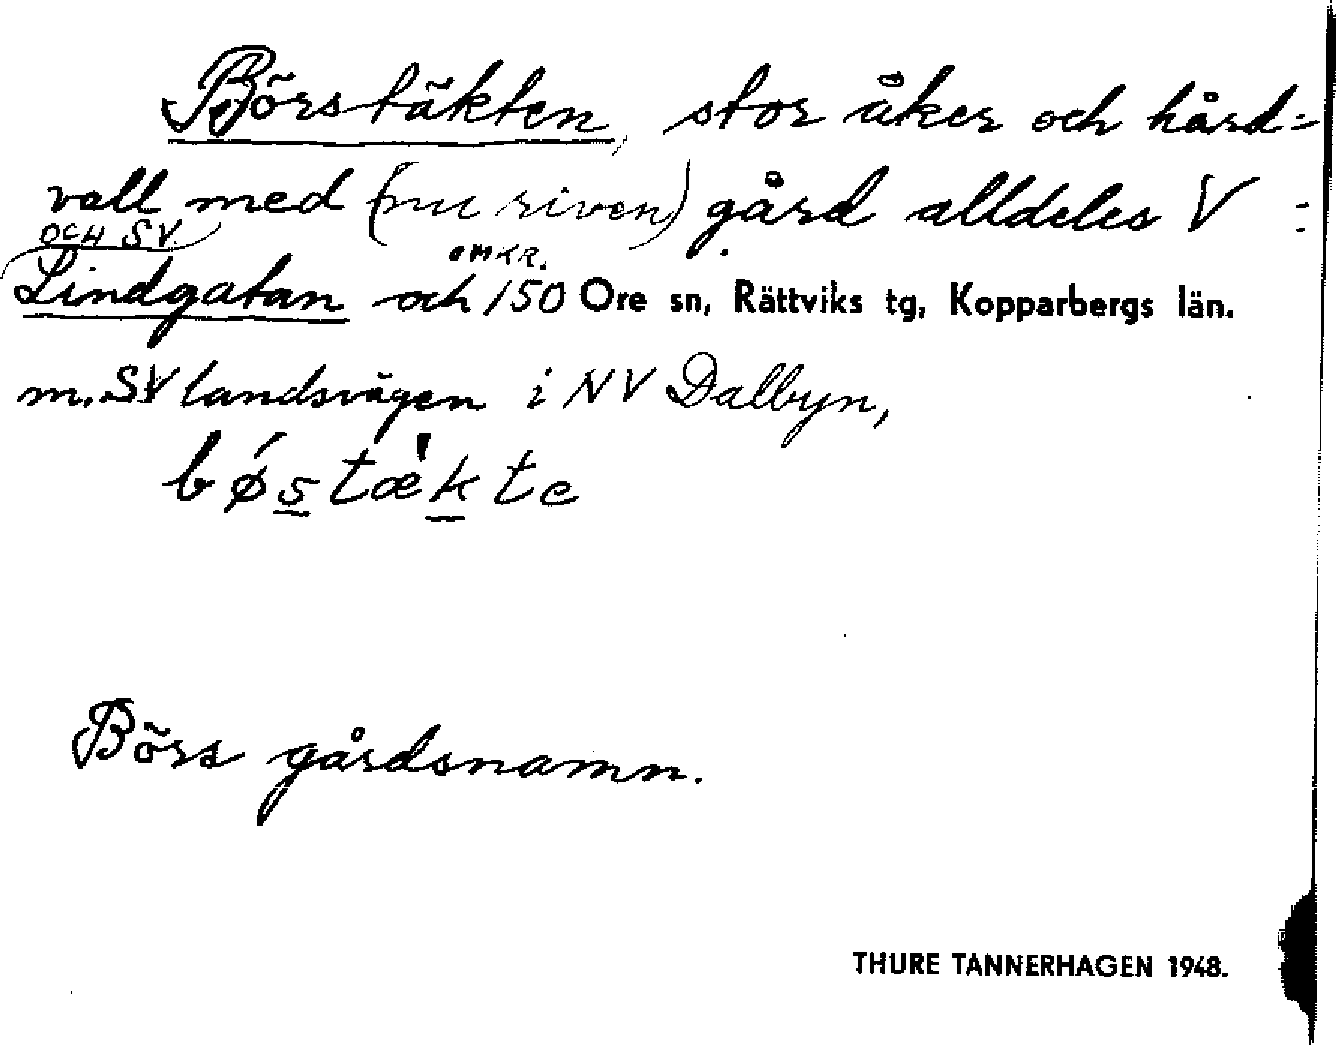 Börstäkten, stor åker och hård-
vall med (nu riven) gård alldeles V
OCH SV.
OMKR.
Lindgatan och 150 Ore sn, Rättviks tg, Kopparbergs län.
m. SV landsvägen i NV Dalbyn,
bǿstæ̀kte
Börs gårdsnamn.
THURE TANNERHAGEN 1948.